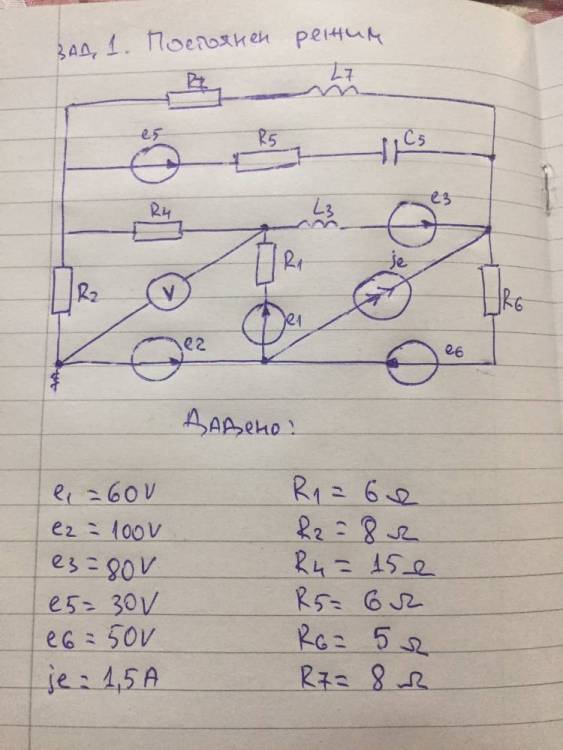 ЗАД. 1. Постоянен режим
R7 L7
e5 R5 C5
R4 L3 e3
R2 V R1 je R6
e1
e2 e6
Дадено:
e1 = 60V R1 = 6 Ω
e2 = 100V R2 = 8 Ω
e3 = 80V R4 = 15 Ω
e5 = 30V R5 = 6 Ω
e6 = 50V R6 = 5 Ω
je = 1,5A R7 = 8 Ω